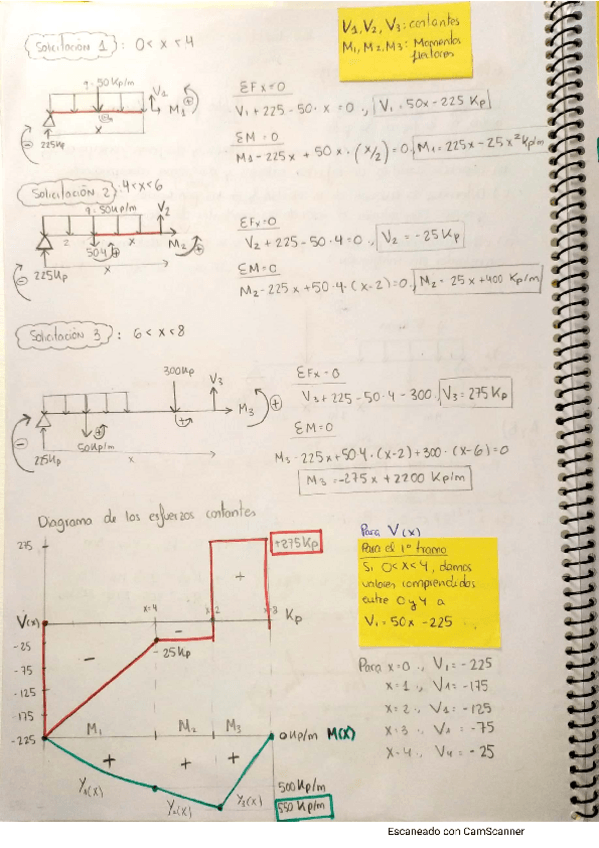 V1, V2, V3: cortantes
M1, M2, M3: Momentos
flectores
Solicitación 1 : 0 < x < 4
q = 50 Kp/m
V1
M1
+
x
-
225Kp
ΣFx=0
V1 + 225 - 50 · x = 0 ., V1 = 50x - 225 Kp
ΣM = 0
M1 - 225x + 50x · (x/2) = 0. M1 = 225x - 25x² Kp/m
Solicitación 2 : 4 < x < 6
q = 50Kp/m
V2
2
x
M2
50·4
+
+
-
225Kp
x
ΣFv=0
V2 + 225 - 50·4 = 0 ., V2 = -25 Kp
ΣM=0
M2 - 225x + 50·4·(x-2) = 0. M2 = 25x + 400 Kp/m
Solicitación 3 : 6 < x < 8
300Kp
V3
M3
+
+
-
225Kp
50Kp/m
x
ΣFx = 0
V3 + 225 - 50·4 - 300 . V3 = 275 Kp
ΣM=0
M3 - 225x + 50·4·(x-2) + 300·(x-6) = 0
M3 = -275x + 2200 Kp/m
Diagrama de los esfuerzos cortantes
275
+275 Kp
+
V(x)
x=4
Kp
-25
-
- 25 Kp
-75
-
-125
-175
-225
M1
M2
M3
0 Kp/m M(x)
+
+
+
Y1(x)
Y2(x)
Y3(x)
500 Kp/m
550 Kp/m
Para V(x)
Para el 1º tramo
Si 0 < x < 4, damos
valores comprendidos
entre 0 y 4 a
V1 = 50x - 225 .,
Para x=0 ., V1 = -225
x=1 ., V1 = -175
x=2 ., V1 = -125
x=3 ., V1 = -75
x=4 ., V4 = -25
Escaneado con CamScanner